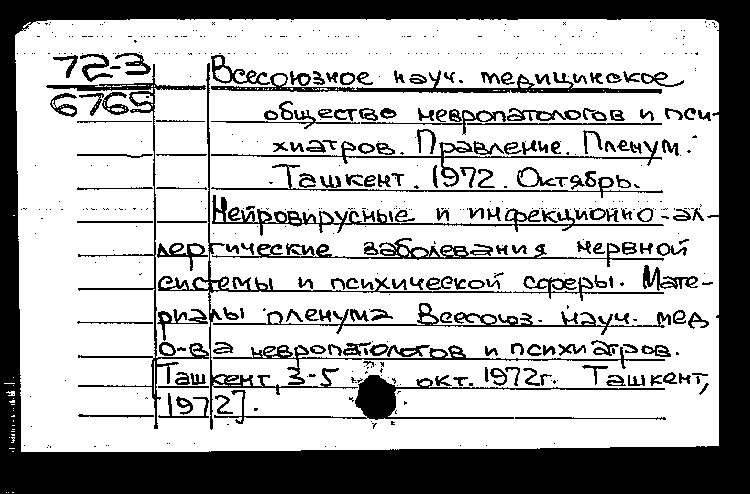 72-3 Всесоюзное науч. медицинское
6765 общество невропатологов и пси-
хиатров. Правление. Пленум.
Ташкент. 1972. Октябрь.
Нейровирусные и инфекционно-ал-
лергические заболевания нервной
системы и психической сферы. Мате-
риалы пленума Всесоюз. науч. мед.
о-ва невропатологов и психиатров.
[Ташкент, 3-5 окт. 1972г. Ташкент,
1972].